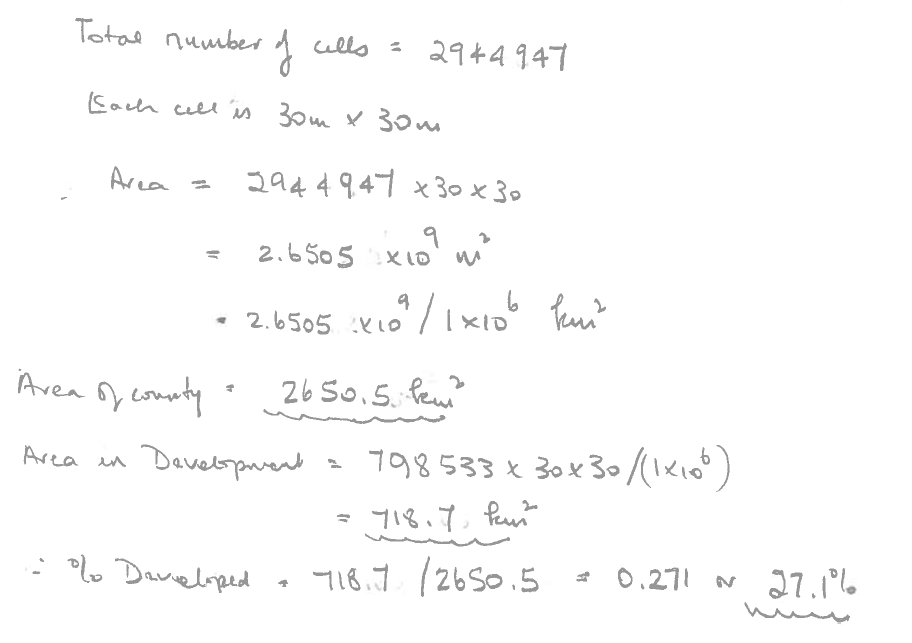 Total number of cells = 2944947
Each cell is 30m x 30m
Area = 2944947 x 30 x 30
= 2.6505 x10⁹ m²
= 2.6505 x10⁹ / 1x10⁶ km²
Area of county = 2650.5 km²
Area in Development = 798533 x 30x30/(1x10⁶)
= 718.7 km²
∴ % Developed = 718.7 / 2650.5 = 0.271 ~ 27.1%